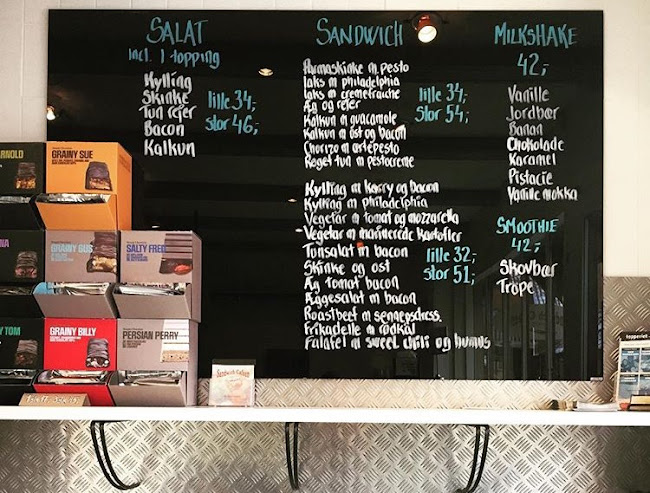 SALAT
incl. 1 topping
Kylling
Skinke
Tun rejer
Bacon
Kalkun
lille 34,-
stor 46,-
SANDWICH
Parmaskinke m. pesto
Laks m philadelphia
Laks m cremefraiche
Æg og rejer
Kalkun m guacamole
Kalkun m ost og bacon
Chorizo m artépesto
Røget tun m pestocreme
lille 34,-
stor 54,-
Kylling m karry og bacon
Kylling m philadelphia
Vegetar m tomat og mozzarella
Vegetar m marinerede kartofler
Tunsalat m bacon
Skinke og ost
Æg tomat bacon
Æggesalat m bacon
Roastbeef m sennepsdress.
Frikadelle m rødkål
Falafel m sweet chili og humus
lille 32,-
stor 51,-
MILKSHAKE
42,-
Vanille
Jordbær
Banan
Chokolade
Karamel
Pistacie
Vanille mokka
SMOOTHIE
42,-
Skovbær
Trope
ARNOLD
GRAINY SUE
NA
GRAINY GUS
SALTY FRED
Y TOM
GRAINY BILLY
PERSIAN PERRY